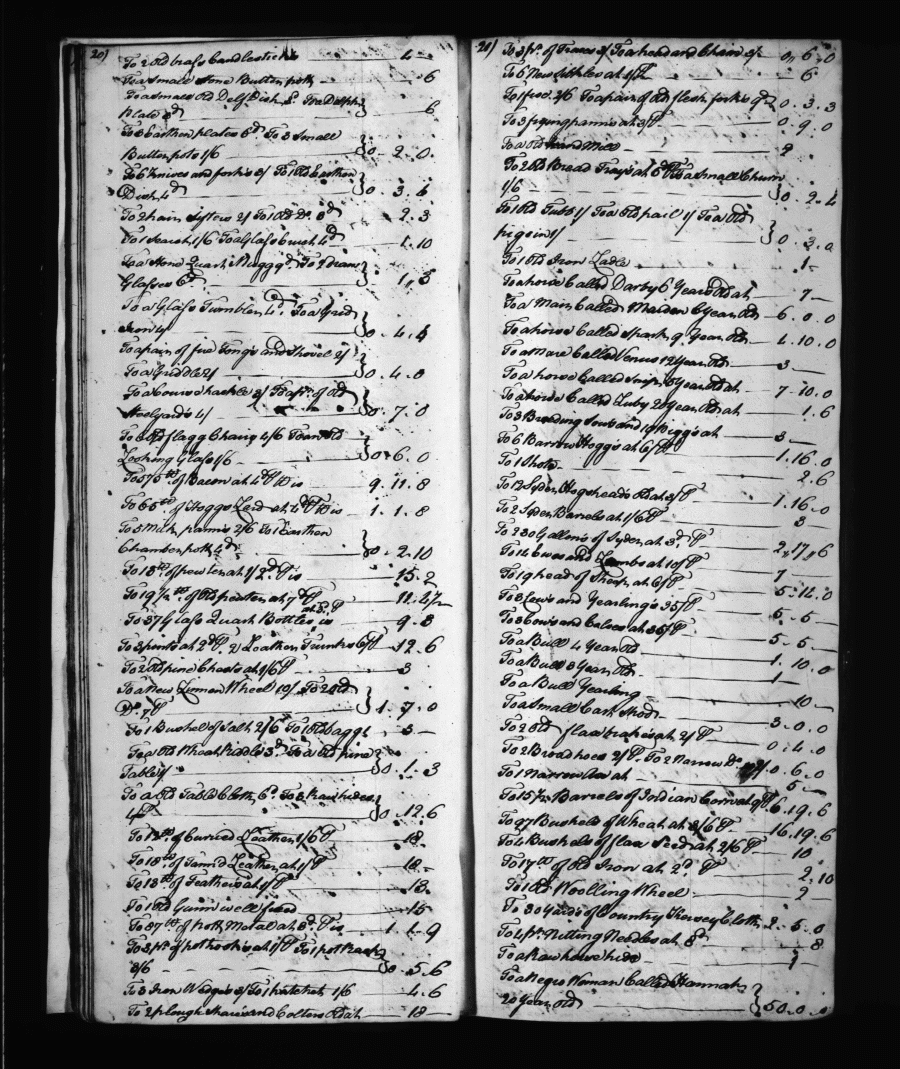 20)
To 2 old brass Candlesticks 4 -
To a Small Stone Butter pott 6
To a Small old Delf Dish To a Delph
plate 3d 6
To 3 Earthen plates 6d To 3 Small
Butter pots 1/6 0 . 2 . 0
To 6 knives and forks 3/ To 1 old Earthen
Dish 4d 0 . 3 . 4
To 2 hair sifters 2/ To 1 old Do 3d 2 . 3
To 1 Search 1/6 To a Glass brush 4d 1 . 10
To a Stone Quart Mugg To 2 dram
Glasses 6d 1 , 3
To a Glass Tumbler 4d To a Grid
Iron 4/ 0 . 4 . 4
To a pair of fire Tongs and Shovel 2/
To a Griddle 2/ 0 . 4 . 0
To a Course hackle 3/ To a pr. of old
Steelyards 4/ 0 . 7 . 0
To 6 old flagg Chairs 4/6 To an old
Looking Glass 1/6 0 . 6 . 0
To 575 lb of Bacon at 4d P lb is 9 . 11 . 8
To 65 lb of Hoggs Lard at 4d P lb is 1 . 1 . 8
To 5 Milk panns 2/6 To 1 Earthen
Chamber pott 4d 0 . 2 . 10
To 13 lb of pewter at 1/2d P is 15 . 2
To 19 1/2 lb of old pewter at 7d P 11 . 4 1/2
To 37 Glass Quart Bottles at 3d P is 9 . 3
To 3 pints at 2d P 2 Leathern Trunks 6/P 12 . 6
To 2 old pine Chests at 1/6 P 3
To a New Linnen Wheel 10/ To 2 old
Do 7/P 1 . 7 . 0
To 1 Bushel of Salt 2/6 To 1 old bagg 3 -
To a old Wheat Riddle 3d To a old pine
Table 1/ 0 . 1 . 3
To a old Table Cloth 6d To 3 Raw hides
4/P 0 . 12 . 6
To 12 lb of Curried Leather 1/6 P 18
To 18 lb of Tann'd Leather at 1/P 18
To 18 lb of Feathers at 1/P 18
To 1 old Gunn well fixed 15
To 87 lb of pott Metal at 3d P is 1 . 1 . 9
To 3 pr of pothooks at 1/P To 1 pot Rack
2/6 0 . 5 . 6
To 3 Iron Wedges 3/ To 1 hatchet 1/6 4 . 6
To 2 plough Shares and Colters old at 18 -
20)
To 3 pr. of Traces 3/ To a head and Chain 3/ 0 , 6 . 0
To 6 New Sithles at 1/P 6
To 1 froe 2/6 To a pair of old flesh forks 9d 0 . 3 . 3
To 3 frying panns at 3/P 0 . 9 . 0
To a old hand Mill 2
To 2 old Bread Trays at 5d P To a Small Churn
1/6 0 . 2 . 4
To 1 old Tubb 1/ To a old pail 1/ To a old
pigein 1/ 0 . 3 . 0
To 1 old Iron Ladle 1 -
To a horse Called Darby 6 Years old at 7 -
To a Mair Called Maiden 6 Year old 6 . 0 . 0
To a horse Called Spark 9 Year old 4 . 10 . 0
To a Mare Called Venus 12 Year old 3 -
To a horse Called Snip 6 Year old at 7 . 10 . 0
To a horse Called Luby 20 Year old at 1 . 6
To 3 Breeding Sows and 19 Piggs at 3 -
To 6 Barrow Hoggs at 6/P 1 . 16 . 0
To 1 Shote 2 . 6
To 12 Syder Hogsheads old at 3/P 1 . 16 . 0
To 2 Syder Barrels at 1/6 P 3 -
To 230 Gallons of Syder at 3d P 2 , 17 , 6
To 14 Ewes and Lambs at 10/P 7
To 19 head of Sheep at 6/P 5 . 14 . 0
To 3 Cows and Yearlings 35/P 5 . 5 -
To 3 Cows and Calves at 35/P 5 . 5 -
To a Bull 4 Year old 1 . 10 . 0
To a Bull 3 Year old 1 -
To a Bull Yearling 10 -
To a Small Cart Shod 3 . 0 . 0
To 2 old flax brakes at 2/P 0 . 4 . 0
To 2 Broad hoes 2/P To 2 Narrow Do 0 . 6 . 0
To 1 Narrow Axe at 5 -
To 15 1/2 Barrels of Indian Corn at 9/P 6 . 19 . 6
To 97 Bushels of Wheat at 3/6 P 16 . 19 . 6
To 4 Bushels of flax Seed at 2/6 P 10
To 17 lb of old Iron at 2d P 2 . 10
To 1 old Woolling Wheel 2
To 30 Yards of Country Kersey Cloth 2 . 5 . 0
To 4 pr. Nitting Needles at 8d 8
To a Raw horse hide 1
To a Negro Woman Called Hannah
20 Year old 50 . 0 . 0